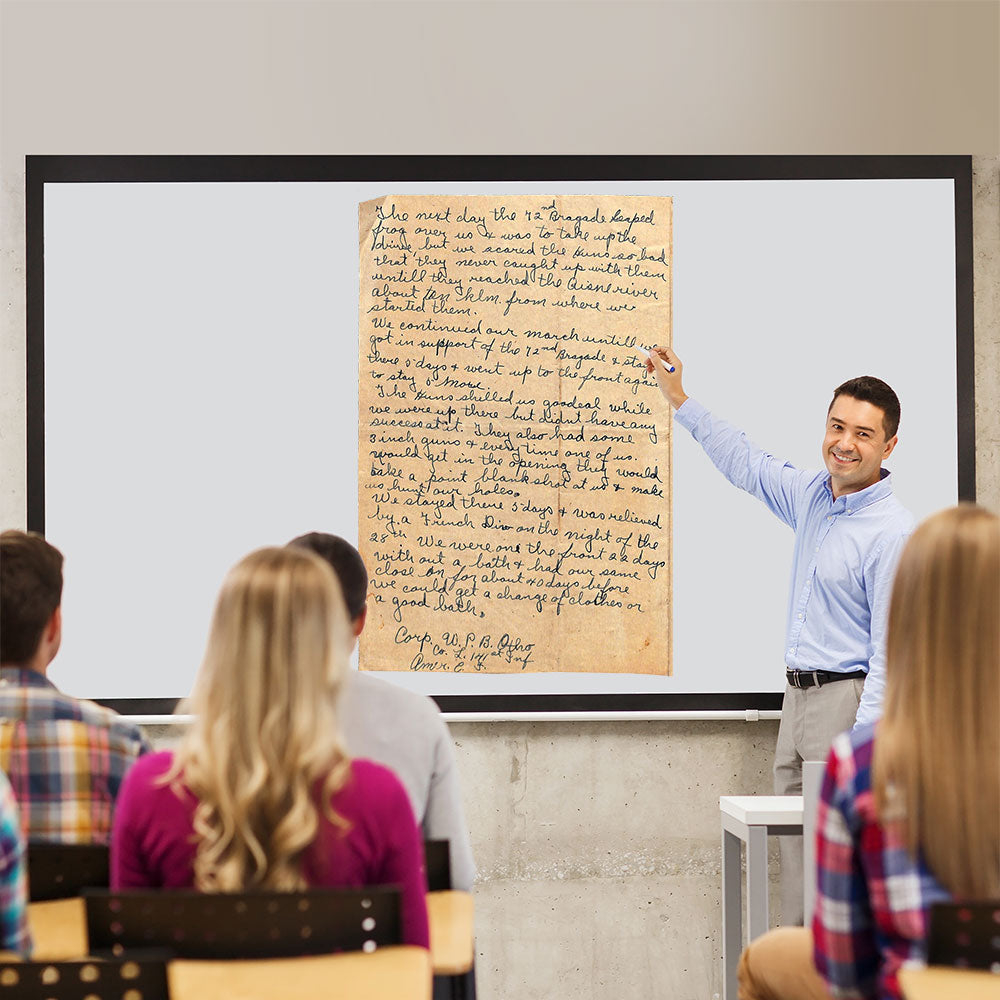 The next day the 72nd Bragade leaped
frog over us & was to take up the
drive, but we scared the Huns so bad
that they never caught up with them
untill they reached the Aisne river
about ten klm. from where we
started them.
We continued our march untill we
got in support of the 72nd Bragade & stay
there 5 days & went up to the front again
to stay 5 more.
The Huns shilled us goodeal while
we were up there but didnt have any
success at it. They also had some
3 inch guns & every time one of us
would get in the opening they would
take a point blank shot at us & make
us hunt our holes.
We stayed there 5 days & was relieved
by a French Div on the night of the
28th We were on the front 22 days
with out a bath & had our same
close on for about 40 days before
we could get a change of clothes or
a good bath.
Corp. W. P. B. Otho
Co. L. 141st Inf
Amer. E. F.